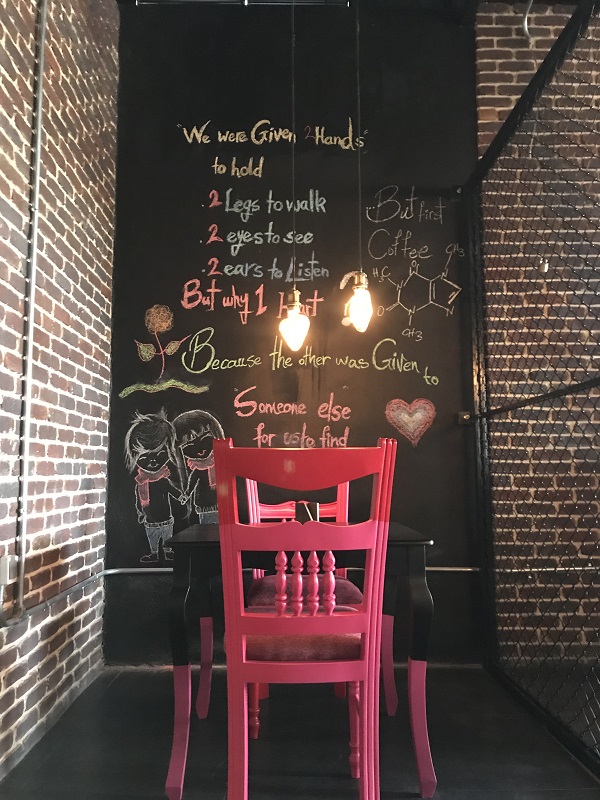 "We were Given 2 Hands"
to hold
.2 Legs to walk
.2 eyes to see
.2 ears to Listen
But why 1
Because the other was Given to
"Someone else"
for us to find
But first
Coffee
CH3
H3C
O
N
N
N
N
O
CH3